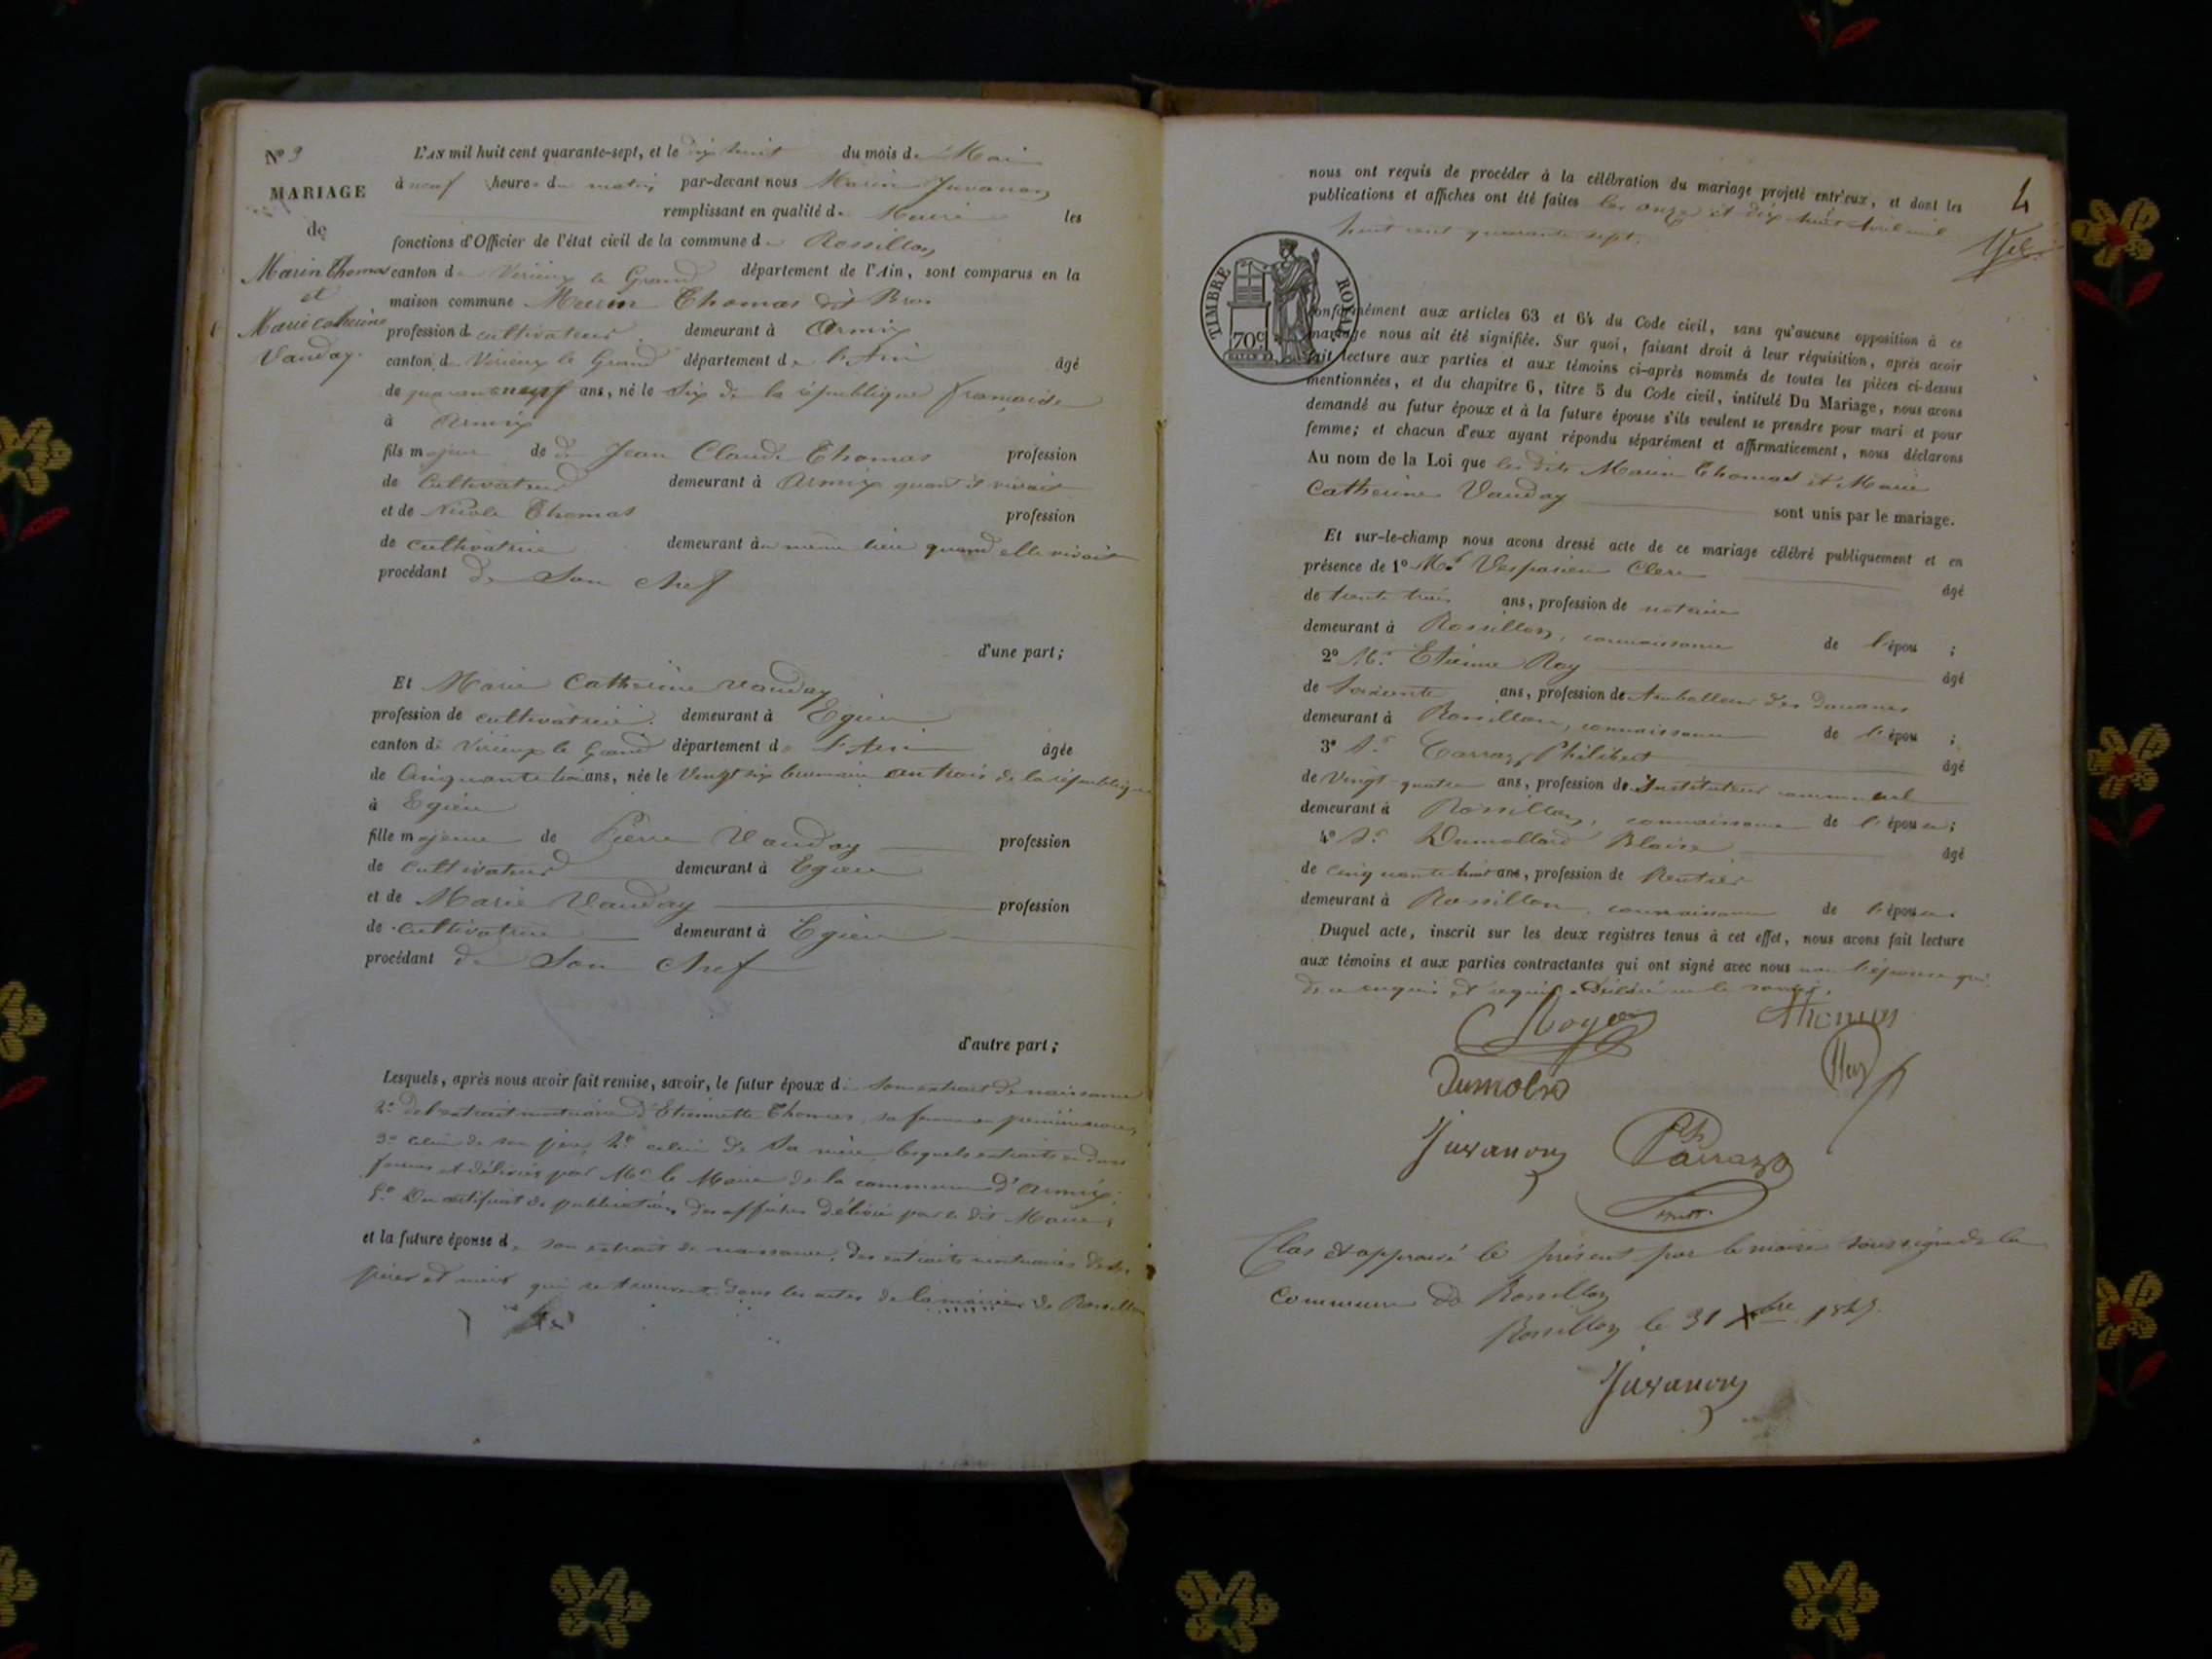 N° 3
L'AN mil huit cent quarante-sept, et le dix huit du mois de Mai
MARIAGE
à neuf heures du matin par-devant nous Marin Juvanon
remplissant en qualité de Maire les
de
fonctions d'Officier de l'état civil de la commune de Rossillon
Marin Thomas
et
Marie catherine
Vauday.
canton de Virieux le Grand département de l'Ain, sont comparus en la
maison commune Marin Thomas dit
profession de cultivateur demeurant à Armix
canton de Virieux le Grand département de l'Ain âgé
de quarante neuf ans, né le Six de la république française
à Armix
fils majeur de Jean Claude Thomas profession
de Cultivateur demeurant à Armix quand il vivait
et de Nicole Thomas profession
de cultivatrice demeurant au même lieu quand elle vivait
procédant de Son chef
d'une part;
Et Marie Catherine Vauday
profession de cultivatrice. demeurant à Egieu
canton de Virieux le Grand département de l'Ain âgée
de Cinquante trois ans, née le Vingt six brumaire an trois de la république
à Egieu
fille majeure de Pierre Vauday profession
de Cultivateur demeurant à Egieu
et de Marie Vauday profession
de Cultivatrice demeurant à Egieu
procédant de Son chef
d'autre part;
Lesquels, après nous avoir fait remise, savoir, le futur époux de Son extrait de naissance
2° de l'extrait mortuaire d'Etiennette Thomas, sa femme en premières noces
3° celui de son père, 4° celui de Sa mère lesquels extraits en dues
formes et délivrés par Mr le Maire de la commune d'Armix;
5° Du certificat de publication des affiches délivré par le dit Maire;
et la future épouse de son extrait de naissance, des extraits mortuaires de ses
père et mère qui se trouvent dans les actes de la mairie de Rossillon
4
nous ont requis de procéder à la célébration du mariage projeté entr'eux, et dont les
publications et affiches ont été faites les onze et dix huit avril mil
huit cent quarante sept.
TIMBRE ROYAL
70c
conformément aux articles 63 et 64 du Code civil, sans qu'aucune opposition à ce
mariage nous ait été signifiée. Sur quoi, faisant droit à leur réquisition, après avoir
fait lecture aux parties et aux témoins ci-après nommés de toutes les pièces ci-dessus
mentionnées, et du chapitre 6, titre 5 du Code civil, intitulé Du Mariage, nous avons
demandé au futur époux et à la future épouse s'ils veulent se prendre pour mari et pour
femme; et chacun d'eux ayant répondu séparément et affirmativement, nous déclarons
Au nom de la Loi que les dits Marin Thomas et Marie
Catherine Vauday sont unis par le mariage.
Et sur-le-champ nous avons dressé acte de ce mariage célébré publiquement et en
présence de 1° Mr Vespasien Clerc âgé
de trente trois ans, profession de notaire
demeurant à Rossillon, connaissance de l'épou ;
2° Mr Etienne Roy âgé
de Soixante ans, profession de Emballeur des douanes
demeurant à Rossillon, connaissance de l'épou ;
3° Sr Carraz Philibert âgé
de Vingt-quatre ans, profession de Instituteur communal
demeurant à Rossillon, connaissance de l'épouse;
4° Sr Dumollard Blaise âgé
de cinquante huit ans, profession de Rentier
demeurant à Rossillon, connaissance de l'épouse.
Duquel acte, inscrit sur les deux registres tenus à cet effet, nous avons fait lecture
aux témoins et aux parties contractantes qui ont signé avec nous non l'épouse qui
de ce enquis et requis a Déclaré ne le savoir.
Thomas
Juvanon
Ph Carraz
Clos et approuvé le présent par le maire soussigné de la
Commune de Rossillon
Rossillon le 31 Xbre 1847.
Juvanon